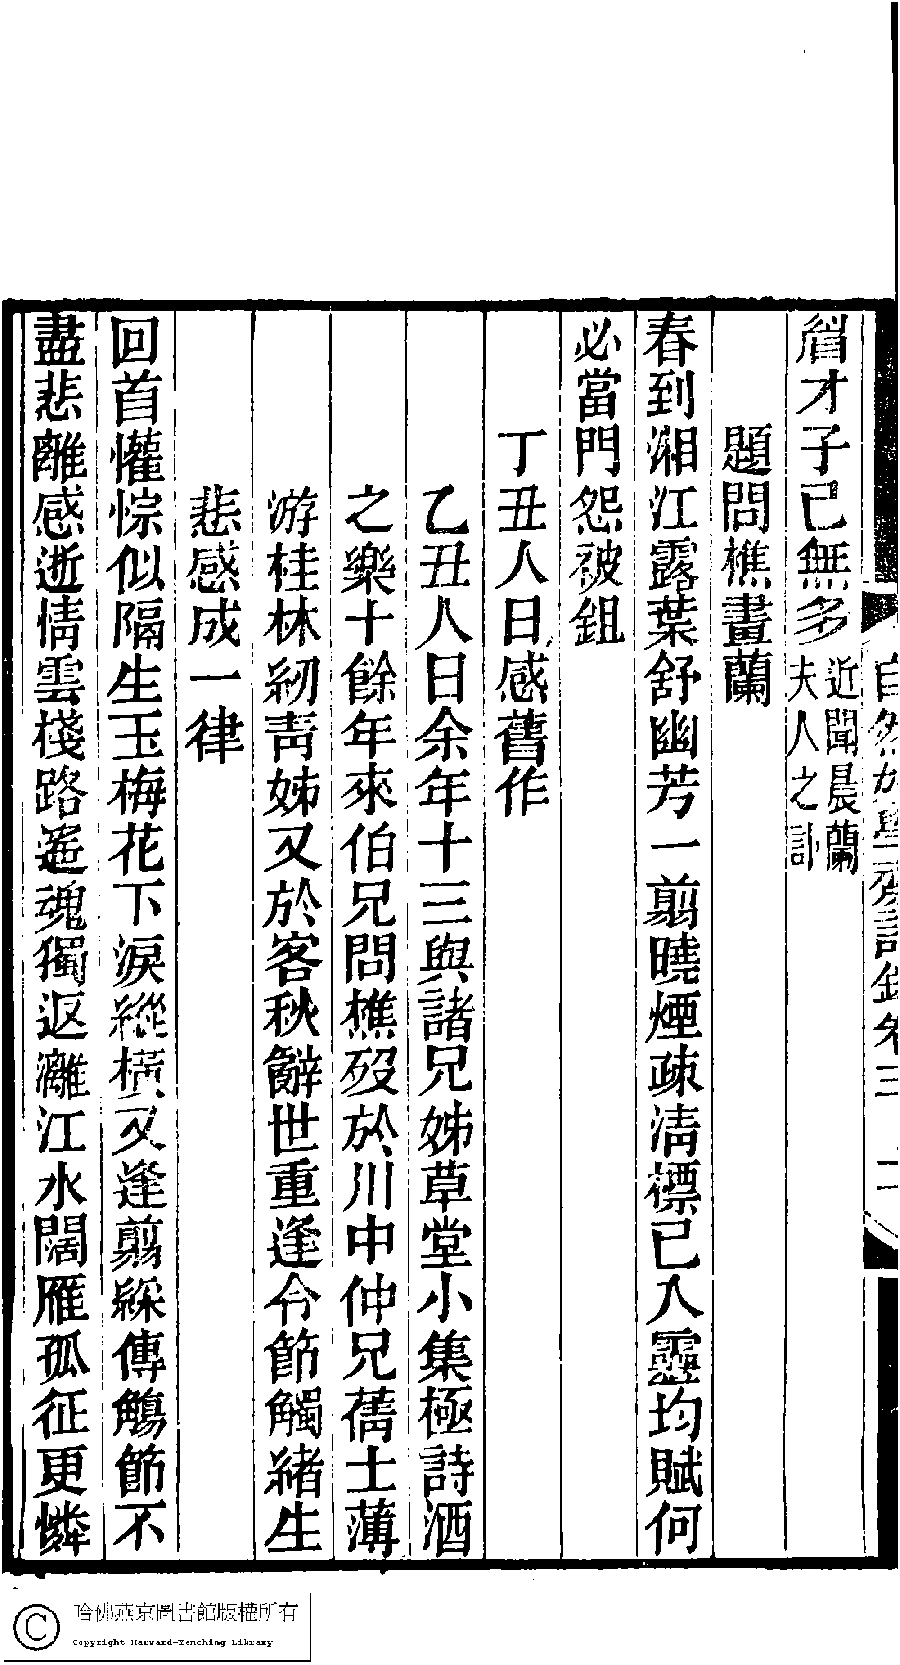 眉才子已無多近聞晨蘭夫人之訃
題問樵畫蘭
春到湘江露葉舒幽芳一翦曉煙疎清標已入靈均賦何
必當門怨被鉏
丁丑人日感舊作
乙丑人日余年十三與諸兄姊草堂小集極詩酒
之樂十餘年來伯兄問樵歿於川中仲兄蒨士薄
游桂林紉青姊又於客秋辭世重逢令節觸緒生
悲感成一律
回首懽悰似隔生玉梅花下淚縱橫又逢翦綵傳觴節不
盡悲離感逝情雲棧路遙魂獨返灕江水闊雁孤征更憐
自然好學齋詩鈔卷三
哈佛燕京圖書館版權所有
Copyright Harvard-Yenching Library